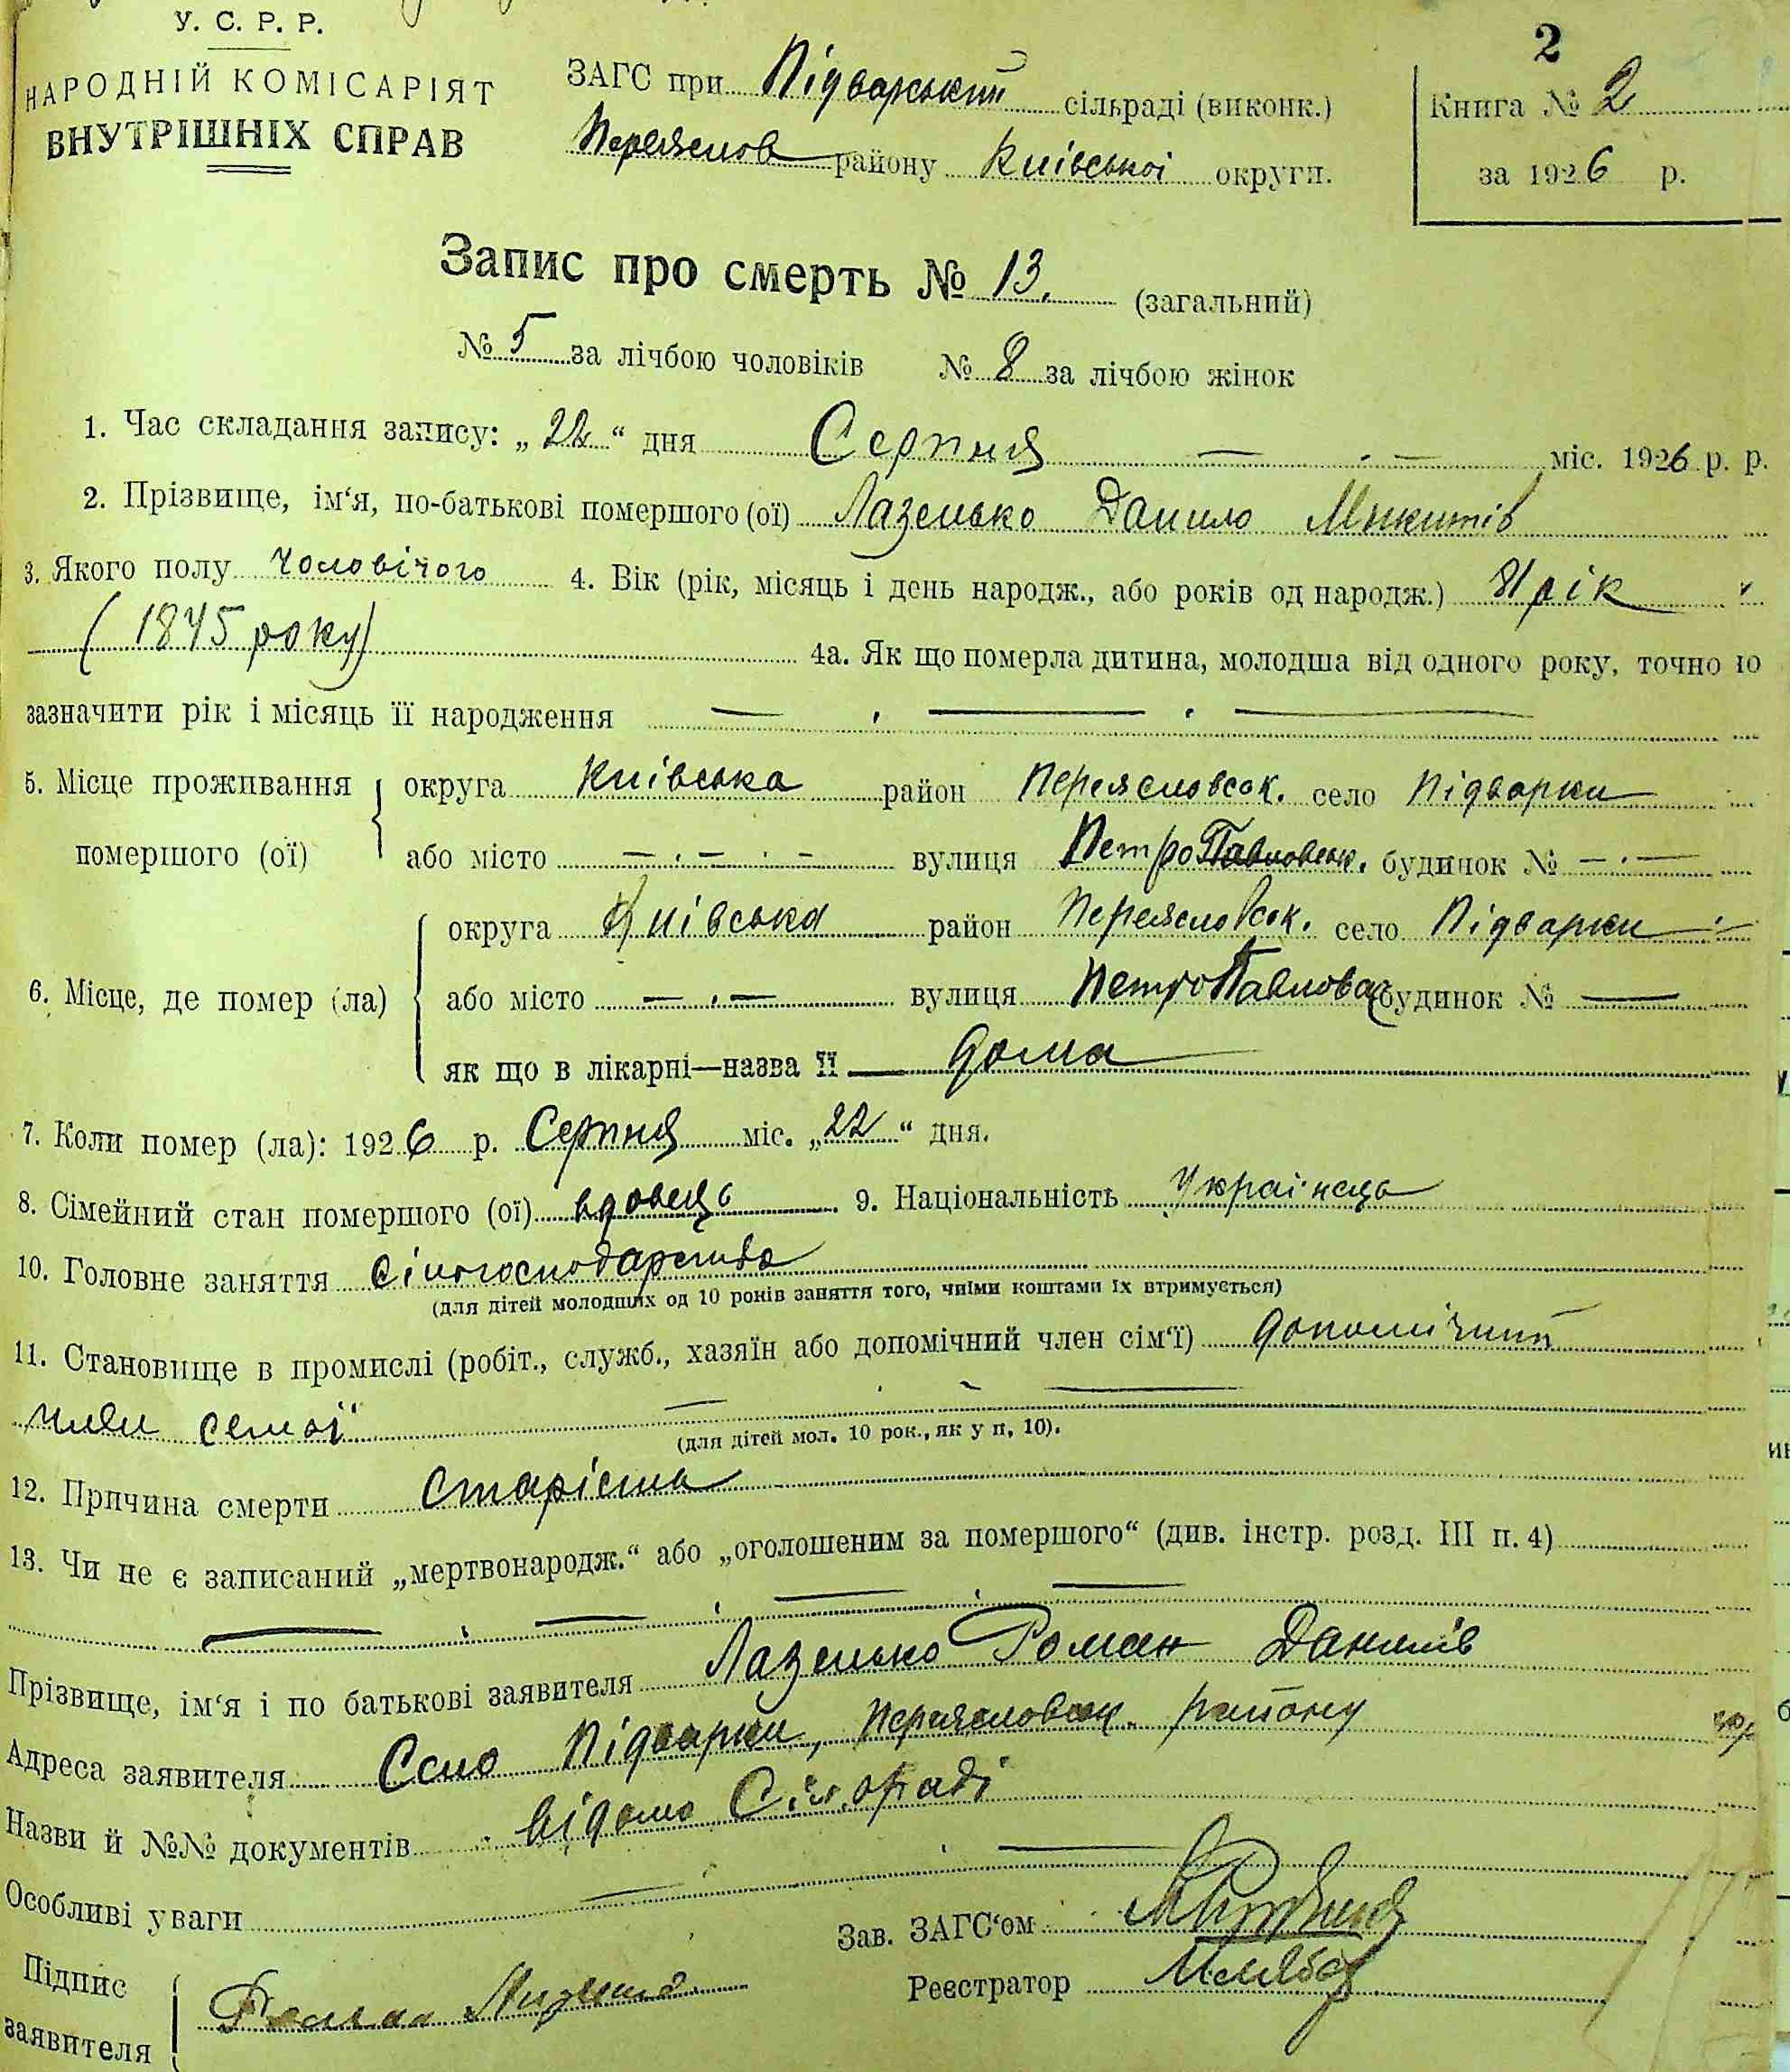 У. С. Р. Р.
НАРОДНІЙ КОМІСАРІЯТ
ВНУТРІШНІХ СПРАВ
ЗАГС при Підварській сільраді (виконк.)
Переяслов району Київської округи.
2
Книга № 2
за 1926 р.
Запис про смерть № 13. (загальний)
№ 5 за лічбою чоловіків № 8 за лічбою жінок
1. Час складання запису: „22“ дня Серпня міс. 1926 р. р.
2. Прізвище, ім‘я, по-батькові помершого (ої) Лазенько Данило Микитів
3. Якого полу чоловічого 4. Вік (рік, місяць і день народж., або років од народж.) 81 рік
(1845 року) 4а. Як що померла дитина, молодша від одного року, точно
зазначити рік і місяць її народження
5. Місце проживання помершого (ої)
округа Київська район Переясловськ. село Підварки
або місто — вулиця ПетроПавловськ. будинок № —
6. Місце, де помер (ла)
округа Київська район Переясловськ. село Підварки
або місто — вулиця ПетроПавловск будинок № —
як що в лікарні—назва її — дома
7. Коли помер (ла): 1926 р. Серпня міс. „22“ дня.
8. Сімейний стан помершого (ої) вдовець 9. Національність Українець
10. Головне заняття Сілгосподарство
(для дітей молодших од 10 років заняття того, чиїми коштами їх втримується)
11. Становище в промислі (робіт., служб., хазяїн або допомічний член сім‘ї) допомічний
член семьї
(для дітей мол. 10 рок., як у п. 10).
12. Причина смерти Старість
13. Чи не є записаний „мертвонародж.“ або „оголошеним за помершого“ (див. інстр. розд. III п. 4)
Прізвище, ім‘я і по батькові заявителя Лазенько Роман Данилів
Адреса заявителя Село Підварки, Переясловськ. району
Назви й №№ документів відомо Сіл.раді
Особливі уваги
Зав. ЗАГС‘ом
Реєстратор
Підпис заявителя Роман Лазенко